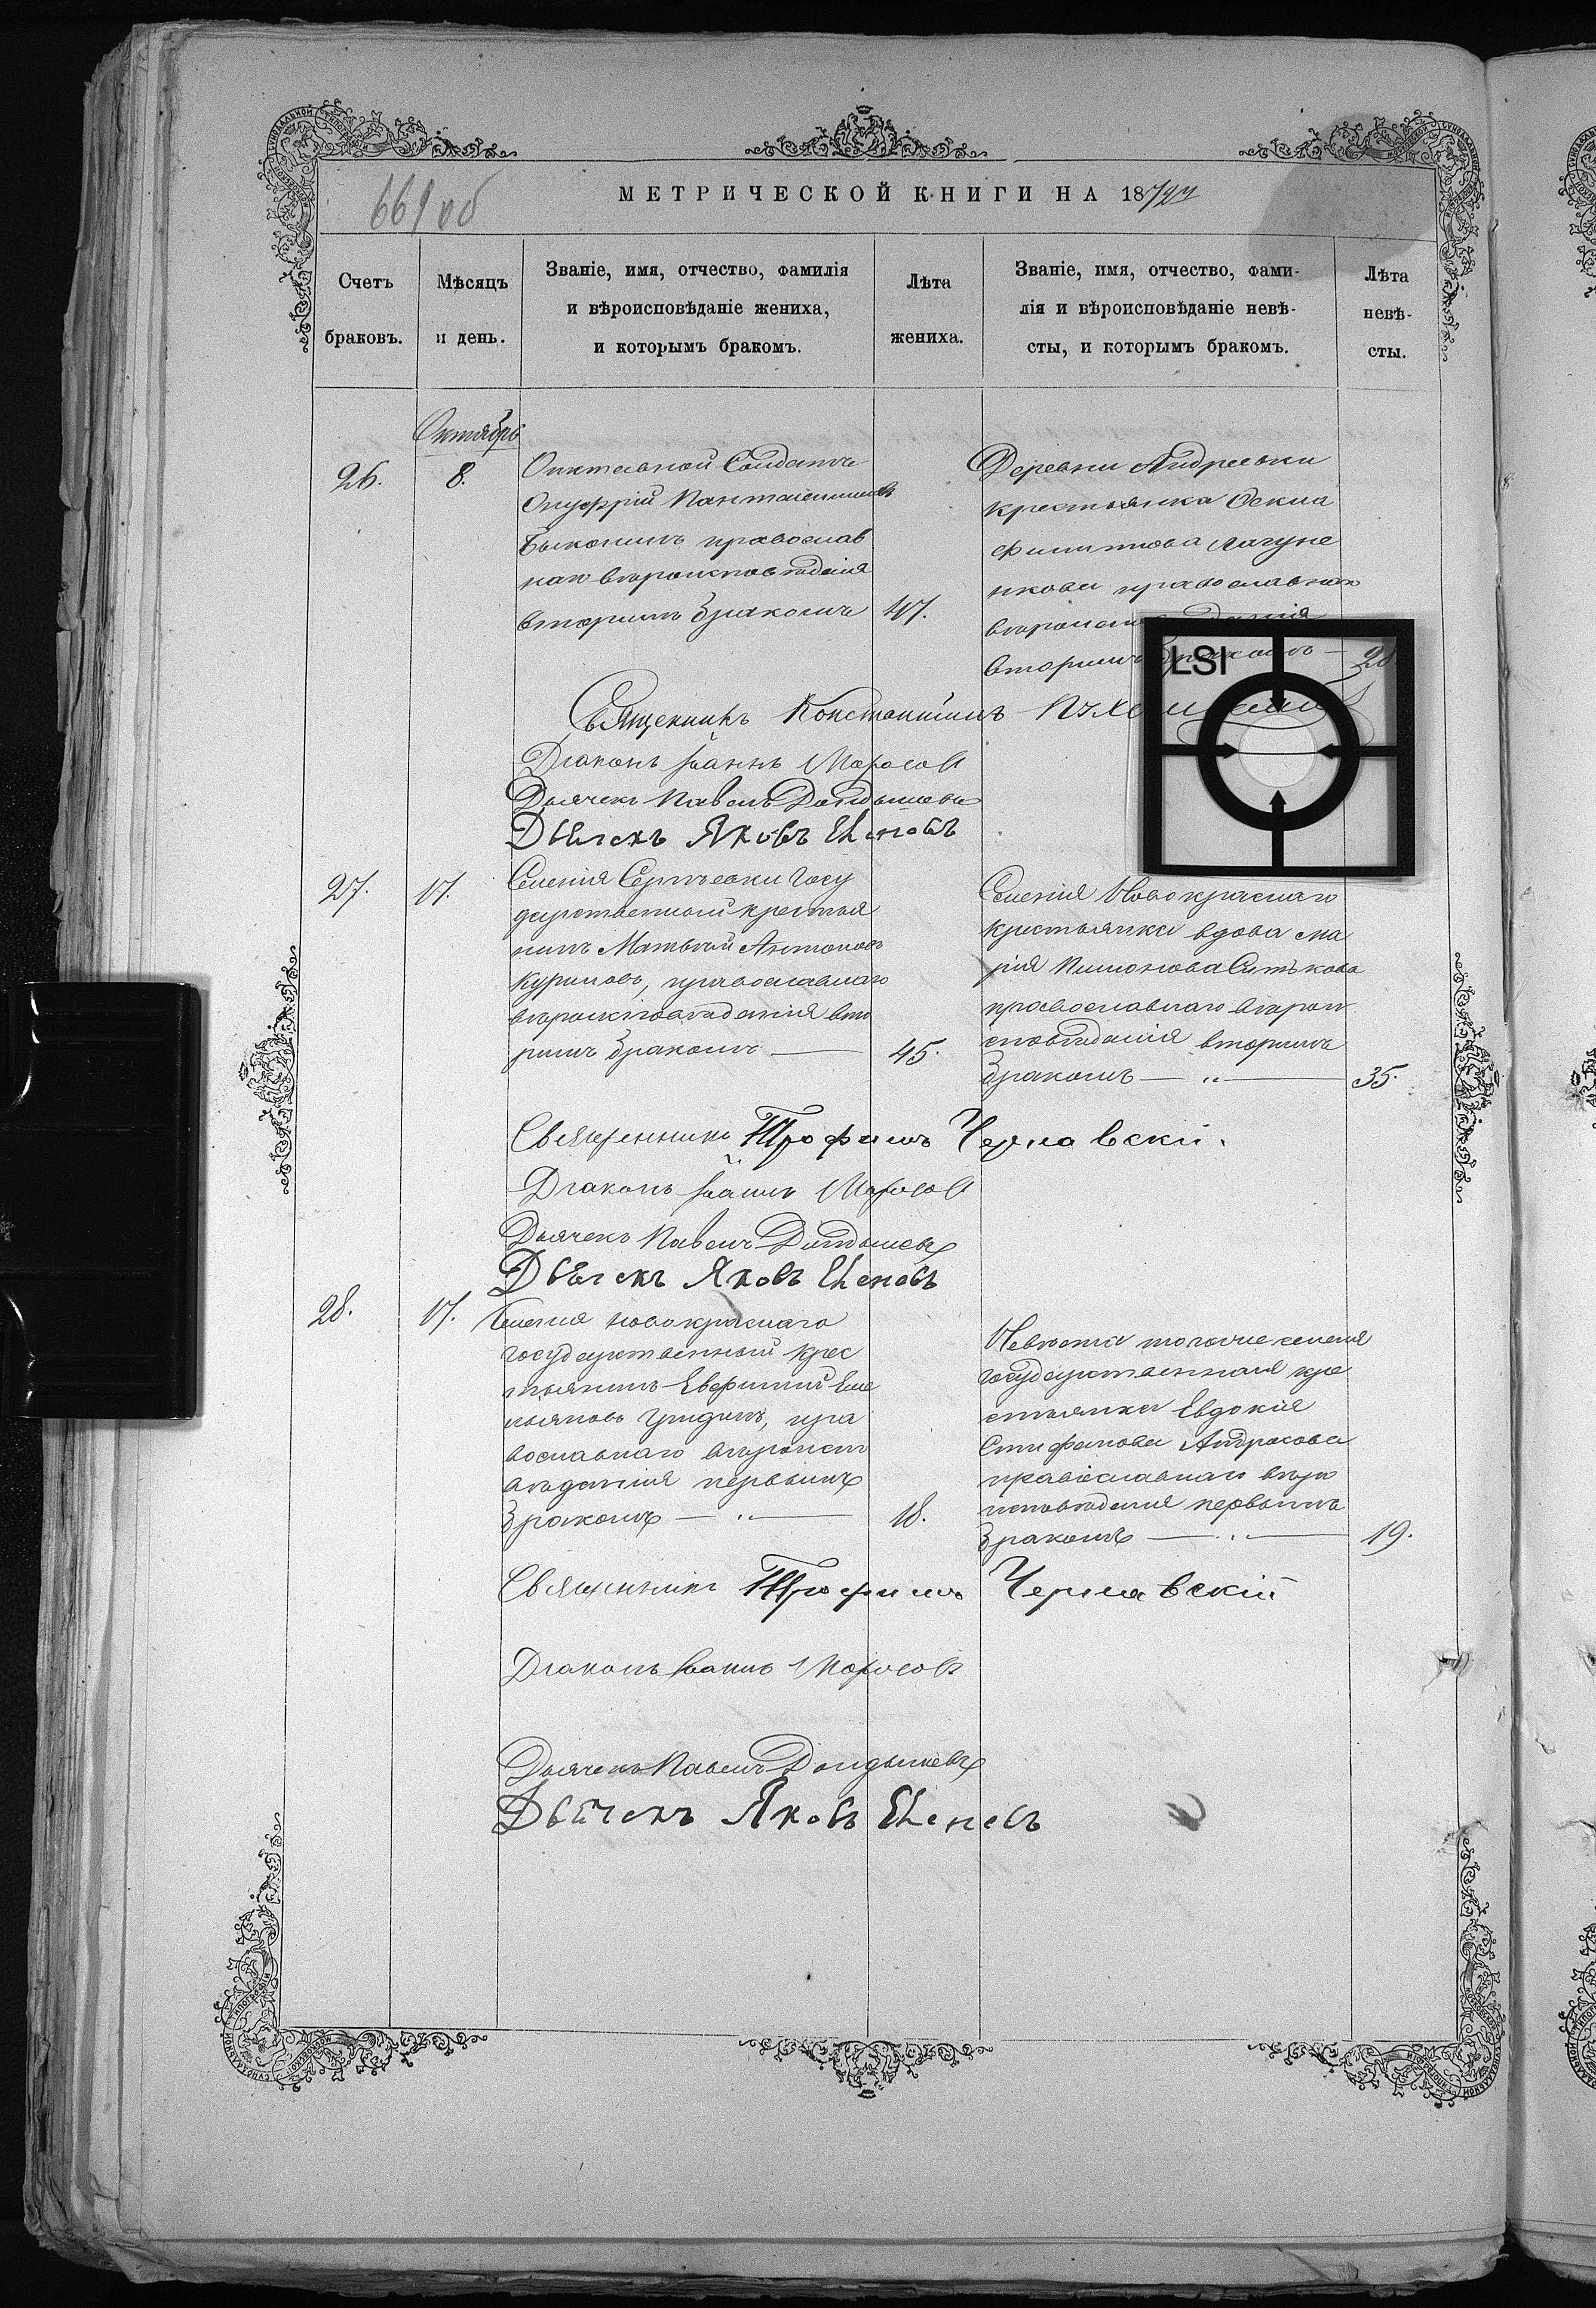 669 об
МЕТРИЧЕСКОЙ КНИГИ НА 18
Счетъ
браковъ.
Мѣсяцъ
и день.
Званіе, имя, отчество, фамилія
и вѣроисповѣданіе жениха,
и которымъ бракомъ.
Лѣта
жениха.
Званіе, имя, отчество, фами-
лія и вѣроисповѣданіе невѣ-
сты, и которымъ бракомъ.
Лѣта
невѣ-
сты.
Октябрь
26.
8.
Солдатъ
Онуфрій
православ
вѣроисповѣданія
вторымъ бракомъ
47.
Деревни Андреевки
крестьянка
православнаго
вторымъ
LSI
Священникъ Константинъ
Діаконъ Іоаннъ Моросов
Дьячекъ Павелъ
Дьячекъ Яковъ
27.
17.
Селенія Сергѣевки Госу
дарственный крестья
нинъ Матвѣй Антоновъ
Куриловъ, православнаго
вѣроисповѣданія вто
рымъ бракомъ
45.
Селенія Новокраснаго
крестьянка вдова Ма
рія
православнаго вѣрои
сповѣданія вторымъ
бракомъ — „ —
35.
Священникъ Трофимъ Чернявскій.
Діаконъ Іоаннъ Моросов
Дьячекъ Павелъ
Дьячекъ Яковъ
28.
17.
Селенія Новокраснаго
государственный крес
тьянинъ Евфимій Еме
льяновъ Гридинъ, пра
вославнаго вѣроиспо
вѣданія первымъ
бракомъ — „ —
18.
Невѣста того же селенія
государственная кре
стьянка Евдокія
Стефанова Андросова
православнаго вѣро
исповѣданія первымъ
бракомъ — „ —
19.
Священникъ Трофимъ Чернявскій
Діаконъ Іоаннъ Моросов
Дьячекъ Павелъ
Дьячекъ Яковъ